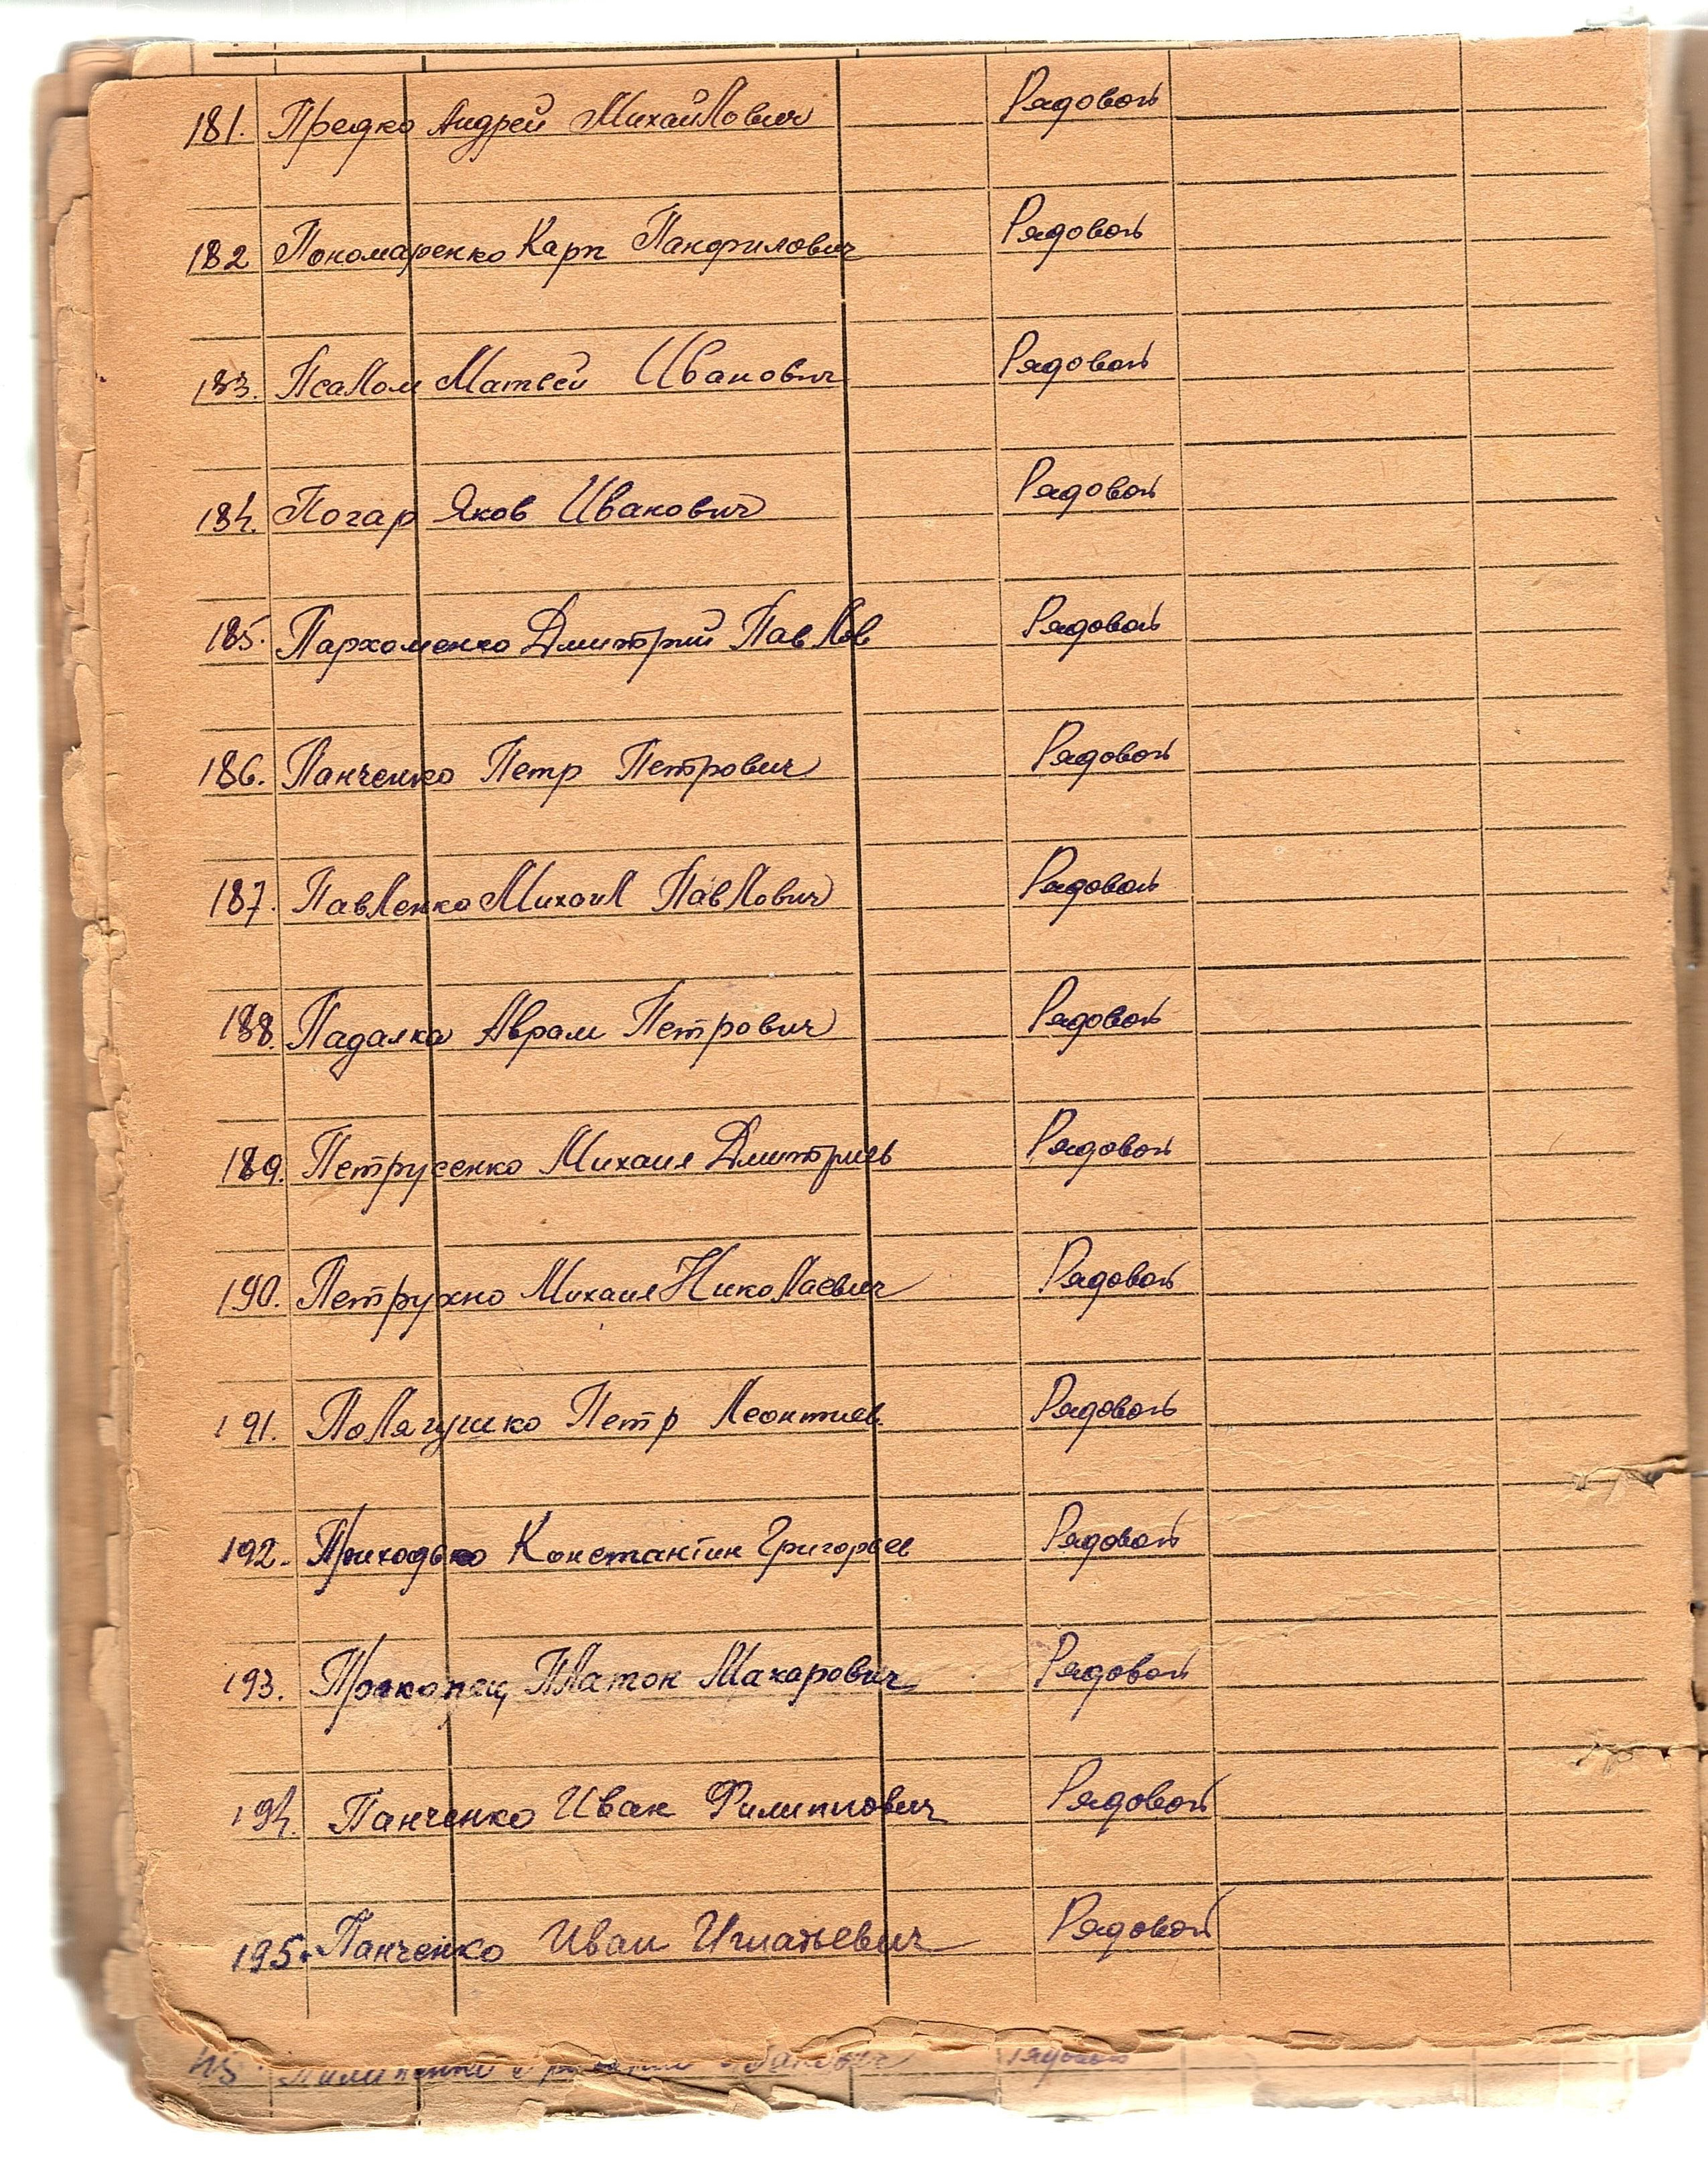 181. Предко Андрей Михайлович Рядовой
182 Пономаренко Карп Панфилович Рядовой
183. Псалом Матвей Иванович Рядовой
184. Погар Яков Иванович Рядовой
185. Пархоменко Дмитрий Павлов Рядовой
186. Панченко Петр Петрович Рядовой
187. Павленко Михаил Павлович Рядовой
188. Падалка Аврам Петрович Рядовой
189. Петрусенко Михаил Дмитриев Рядовой
190. Петрухно Михаил Николаевич Рядовой
191. Полягушко Петр Леонтиев. Рядовой
192. Приходько Константин Григорьев Рядовой
193. Прокопец Платон Макарович Рядовой
194. Панченко Иван Филиппович Рядовой
195. Панченко Иван Игнатьевич Рядовой
Рядовой